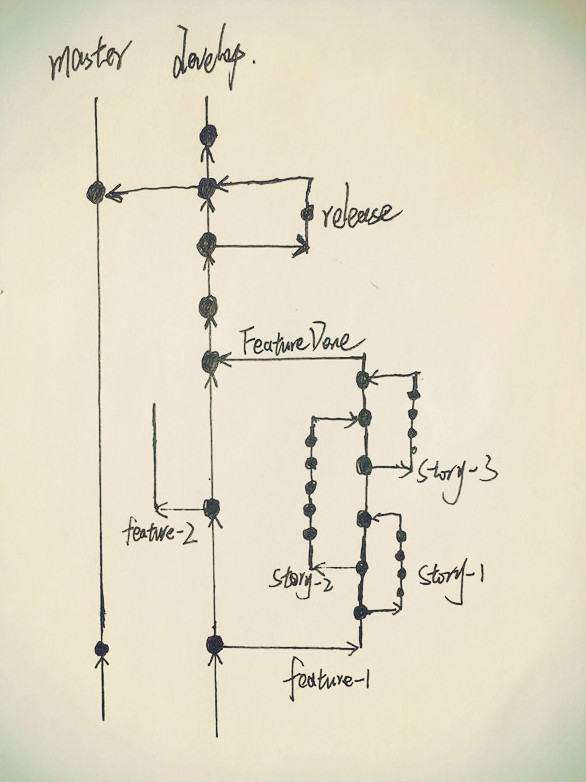 master develop.
release
Feature Done
story-3
feature-2
story-2
story-1
feature-1